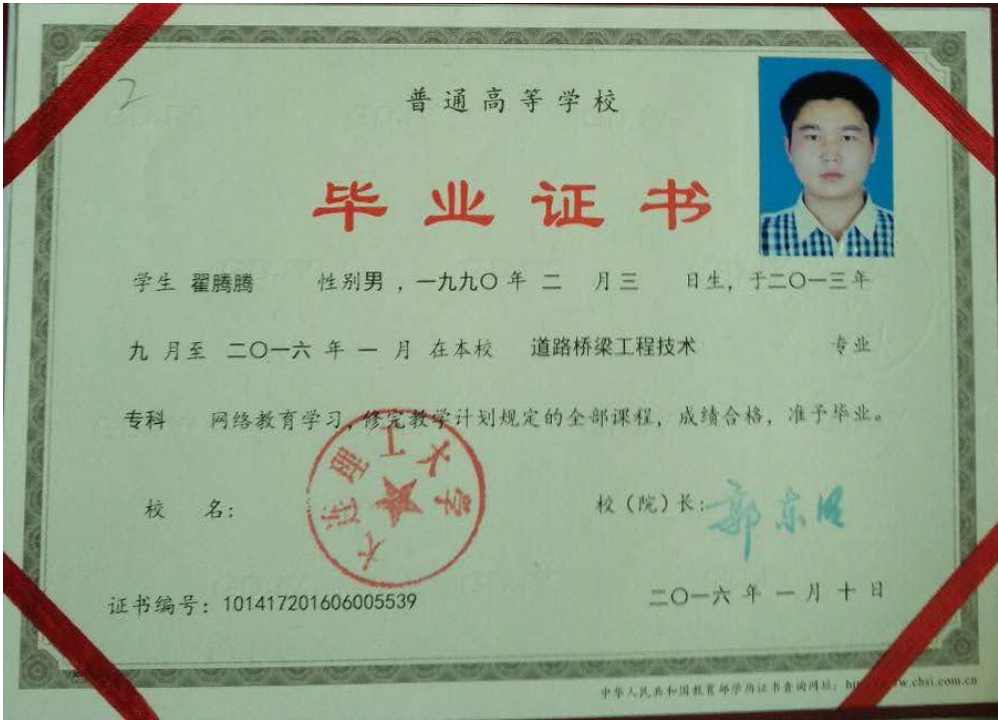 2
普通高等学校
毕业证书
学生 翟腾腾 性别男，一九九〇年 二 月三 日生，于二〇一三年
九 月至 二〇一六 年 一 月 在本校 道路桥梁工程技术 专业
专科 网络教育学习，修完教学计划规定的全部课程，成绩合格，准予毕业。
大连理工大学
校 名： 校（院）长：郭东明
证书编号：101417201606005539 二〇一六 年 一 月 十 日
中华人民共和国教育部学历证书查询网址：ht w.chsi.com.cn